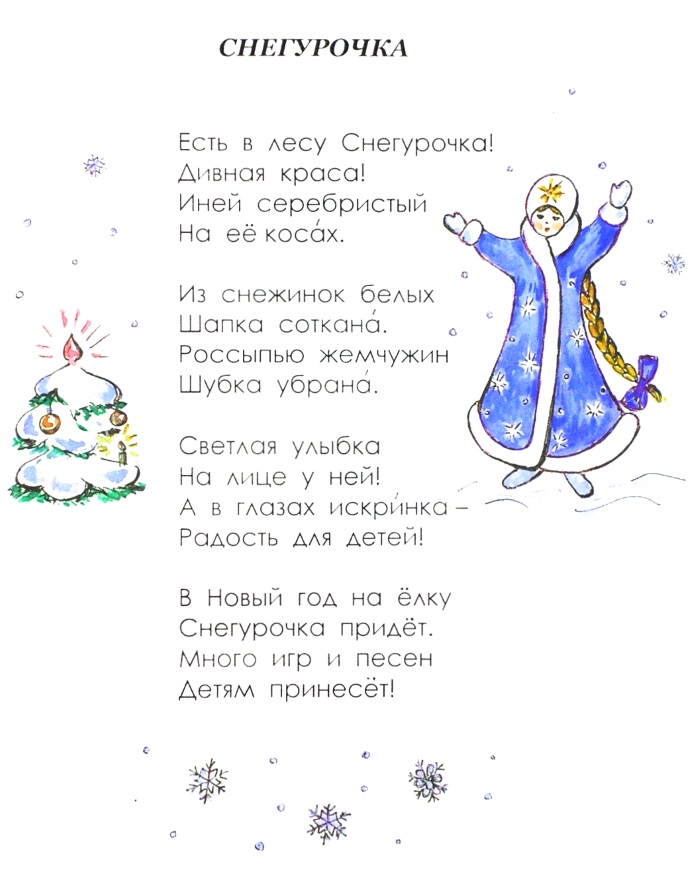 СНЕГУРОЧКА
Есть в лесу Снегурочка!
Дивная краса!
Иней серебристый
На её коса́х.
Из снежинок белых
Шапка соткана́.
Россыпью жемчужин
Шубка убрана́.
Светлая улыбка
На лице у ней!
А в глазах искри́нка –
Радость для детей!
В Новый год на ёлку
Снегурочка придёт.
Много игр и песен
Детям принесёт!